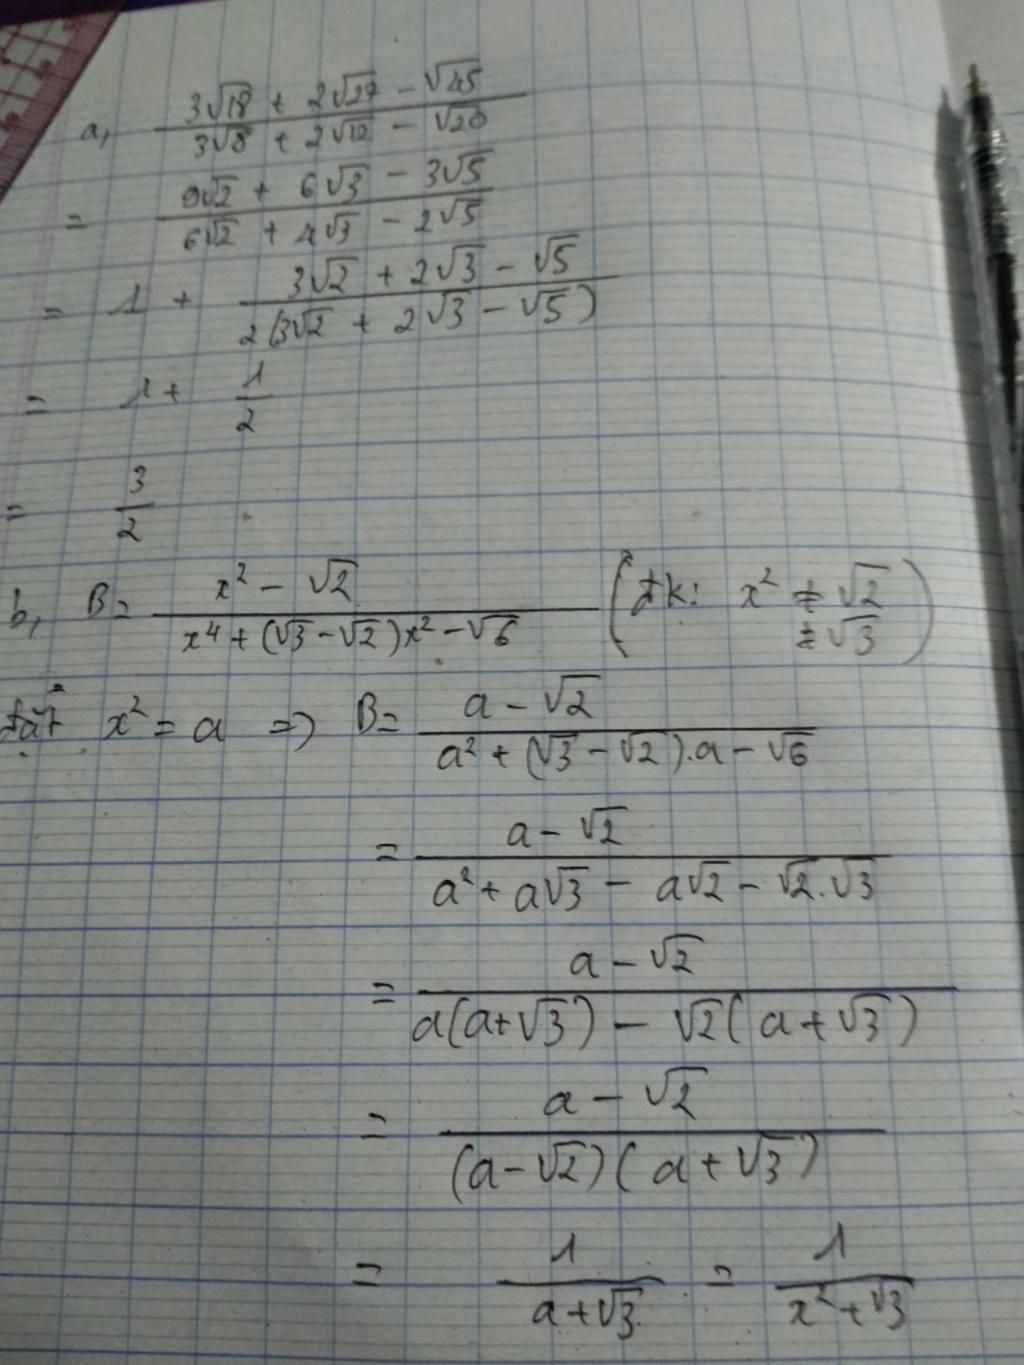 a, (3√18 + 2√27 - √45)/(3√8 + 2√12 - √20)
= (9√2 + 6√3 - 3√5)/(6√2 + 4√3 - 2√5)
= 1 + (3√2 + 2√3 - √5)/(2(3√2 + 2√3 - √5))
= 1 + 1/2
= 3/2
b, B = (x² - √2)/(x⁴ + (√3 - √2)x² - √6) (đk: x² ≠ √2
≠ √3)
đặt x² = a => B = (a - √2)/(a² + (√3 - √2).a - √6)
= (a - √2)/(a² + a√3 - a√2 - √2.√3)
= (a - √2)/(a(a + √3) - √2(a + √3))
= (a - √2)/((a - √2)(a + √3))
= 1/(a + √3) = 1/(x² + √3)